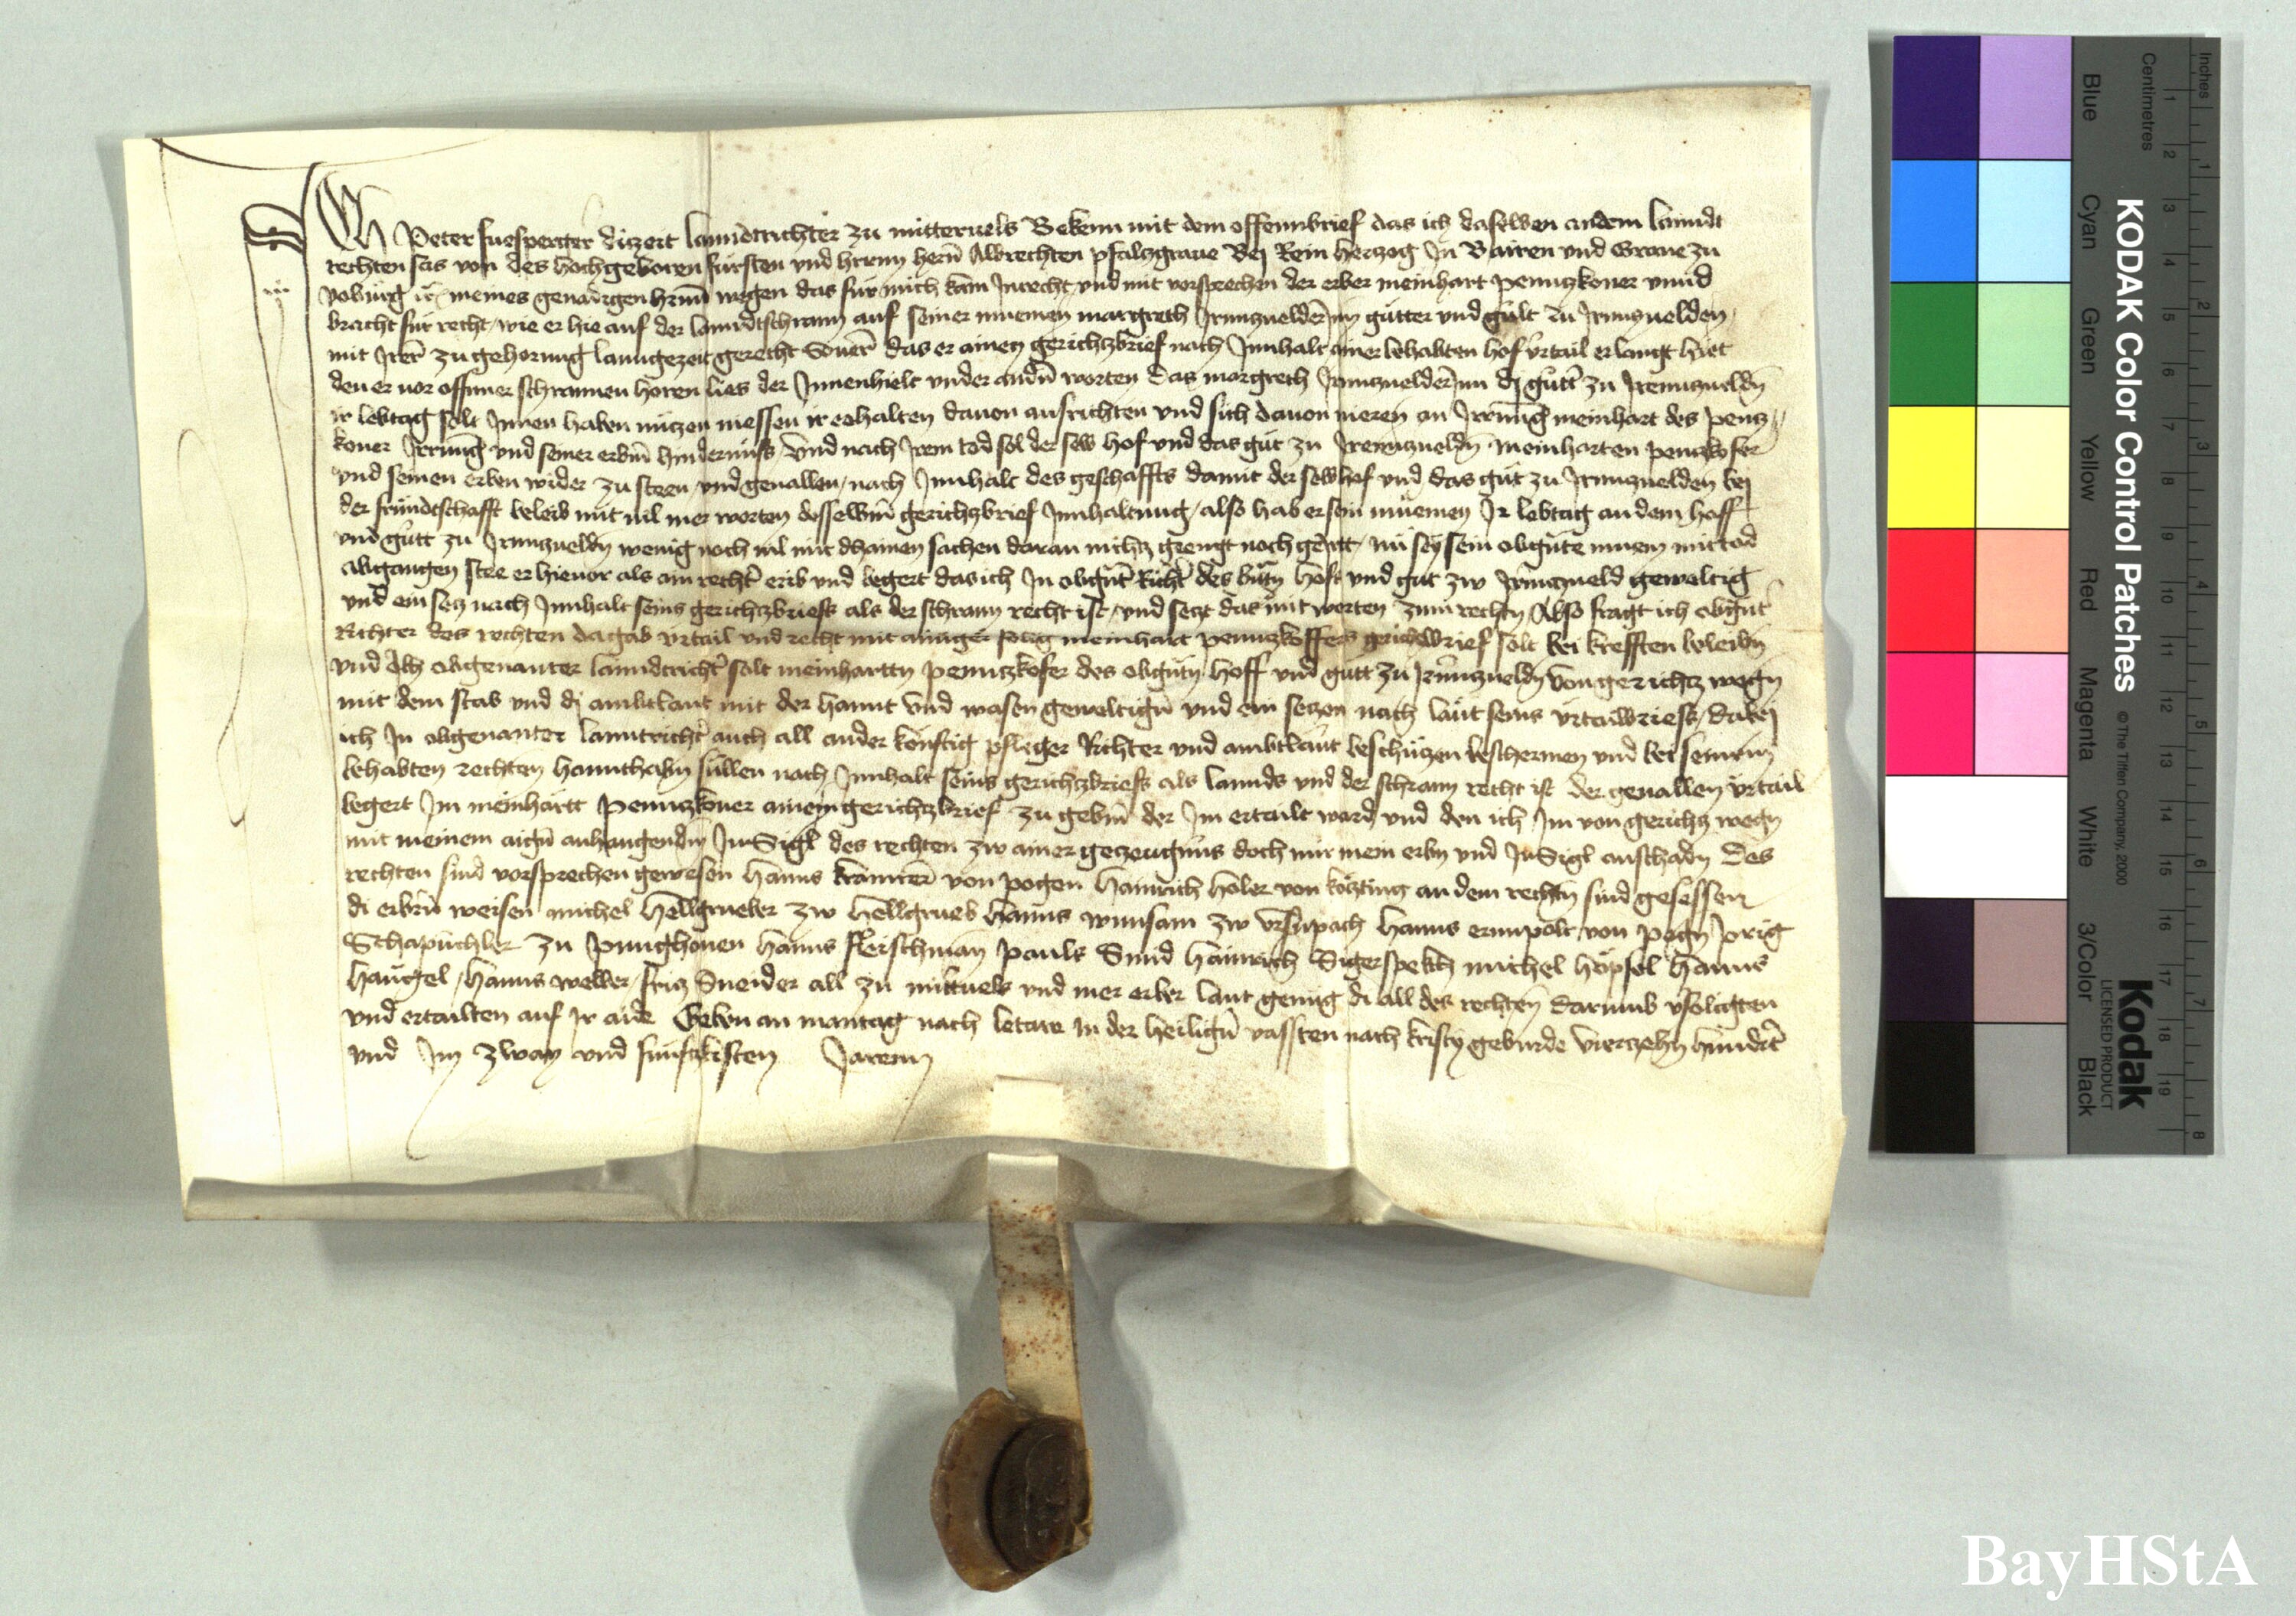 Ich Peter fuesperger dizeit lanndtrichter zu mitteruels Bekenn mit dem offennbrief das ich daselben an dem lanndt
rechten sas von des hochgeboren fürsten vnd herrn hern Albrechten pfalzgraue Bej Rein herczog In Bairen vnd Graue zu
voburg meines genadigen hern wegen das für mich kam In recht vnd mit vorsprechen der erber meinhart pennczkouer vnnd
bracht für recht / wie er hie auf der lanndtschrann auf seiner muemen margreth Irnnczuelderin güter vnd gült zu Irnnczuelden
mit Irer zu gehornng lanngezeit gerecht das er ainen gerichczbrief nach Innhalt ainer behabten hof vrtail erlangt hiet
den er vor offner schrannen horen lies der Innenhielt vnder andern worten das margreth Irnnczuelderinn dj gütt zu Irenczueldn
ir lebtag solt Innen haben nüczen niessen ir eehalten dauon ausrichten vnd sich dauon neren an Irrung meinhart des pencz
kouer Irrung vnd seiner erben hindernüss / vnd nach Irem tod sol der sew hof vnd das güt zu Irenczueldn meinharten penczkofer
vnd seinen erben wider zu steen vnd geuallen / nach Innhalt des geschäffts damit der sewhof vnd das güt zu Irnnczuelden bej
der fründtschafft beleib mit vil mer worten desselben gerichczbrief Innhaltung / also hab er sein muemen Ir lebtag an dem hoff
vnd gütt zu Irnnczueldn wenig noch vil mit dhainen sachen daran nichcz geengt noch geirrt / nü sey sein obgnte muem mit tod
abgangen stee er hieuor als ain rechter erib vnd begert das ich In obgnter Richter des hofs vnd gut zw Irnnczueld geweltig
vnd ein secz nach Innhalt seins gerichczbriefs als der schrann recht ist / vnd seczt das mit worten zum rechtn / Also fragt ich obgnter
Richter des rechten da gab vrtail vnd recht mit ainiger meinhart pennczkoffers gerichczbrief solt bei krefften beleibn
vnd Ich obgenanter lanndtrichter solt meinhartn pennczkofer des obgntn hoff vnd gutt zu Irnnczueldn von gerichcz wegn
mit dem stab vnd dj ambtlaut mit der hannt vnd wasen geweltign vnd ein seczen nach laut seins vrtailbriefs / dabej
ich In obgenanter lanntrichter auch all ander künftig pfleger Richter vnd ambtlaut beschüczen beschermen vnd bei seinen
behabten rechten hannthabn süllen nach Innhalt seins gerichczbriefs als lannds vnd der schrann recht ist der geuallen vrtail
begert Im meinhartt pennczkouer ainen gerichczbrief zu geben der Im ertailt ward vnd den ich Im von gerichcz wegn
mit meinem aign anhangenden InSigl des rechten zw ainer geczeugnüs doch mir mein erbn vnd InSigl anschadn Des
rechten sind vorsprechen gewesen hanns kramer von pogen hainrich holer von kötzting an dem rechtn sind gesessen
di erbrn weisen michel hellgrueber zw hellgrueb hanns wunsam zw vrsnpach hanns ernnpolt von pogn Jorig
Schapüchler zu pünghouen hanns fleischman pauls Smid hainrich Sigerspekch michel höpfel hanns
haugel / hanns weber / fricz Sneider all zu mitteruels vnd mer erber laut genug di all des rechten darumb
vnd ertailten auf ir aide Geben an mantag nach letare in der heiligen vassten nach kristy geburde vierczehn hundert
vnd Im zway vnd fünfczkisten Jarenn
Inches
Centimetres
1 2 3 4 5 6 7 8
1 2 3 4 5 6 7 8 9 10 11 12 13 14 15 16 17 18 19
KODAK Color Control Patches
© The Tiffen Company, 2000
Kodak
LICENSED PRODUCT
Blue
Cyan
Green
Yellow
Red
Magenta
White
3/Color
Black
BayHStA